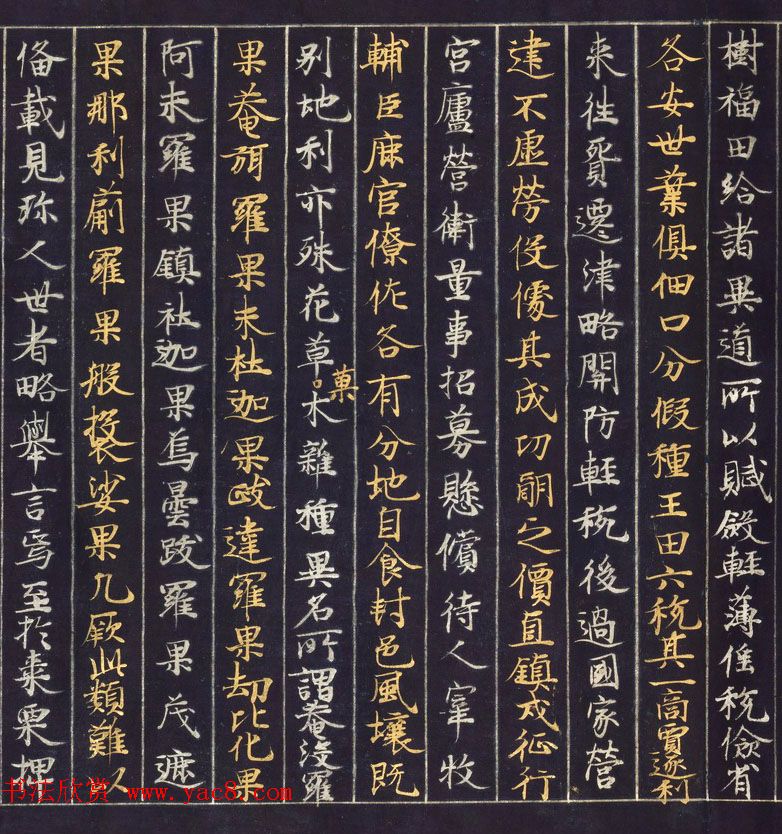 樹福田給諸異道所以賦斂輕薄傜稅儉省
各安世業俱佃口分假種王田六稅其一商賈逐利
来往貿遷津路關防輕稅後過國家營
建不虛勞役據其成功酬之價直鎮戍征行
宮廬營衛量事招募懸償待人宰牧
輔臣庶官僚佐各有分地自食封邑風壤既
别地利亦殊花草菓木雜種異名所謂菴没羅
果菴弭羅果末杜迦果跋達羅果劫比他果
阿末羅果鎮杜迦果烏曇跋羅果茂遮
果那利薊羅果般橠娑果凡厥此類難以
俻載見珎人世者略舉言焉至於棗栗椑
书法欣赏 www.yac8.com